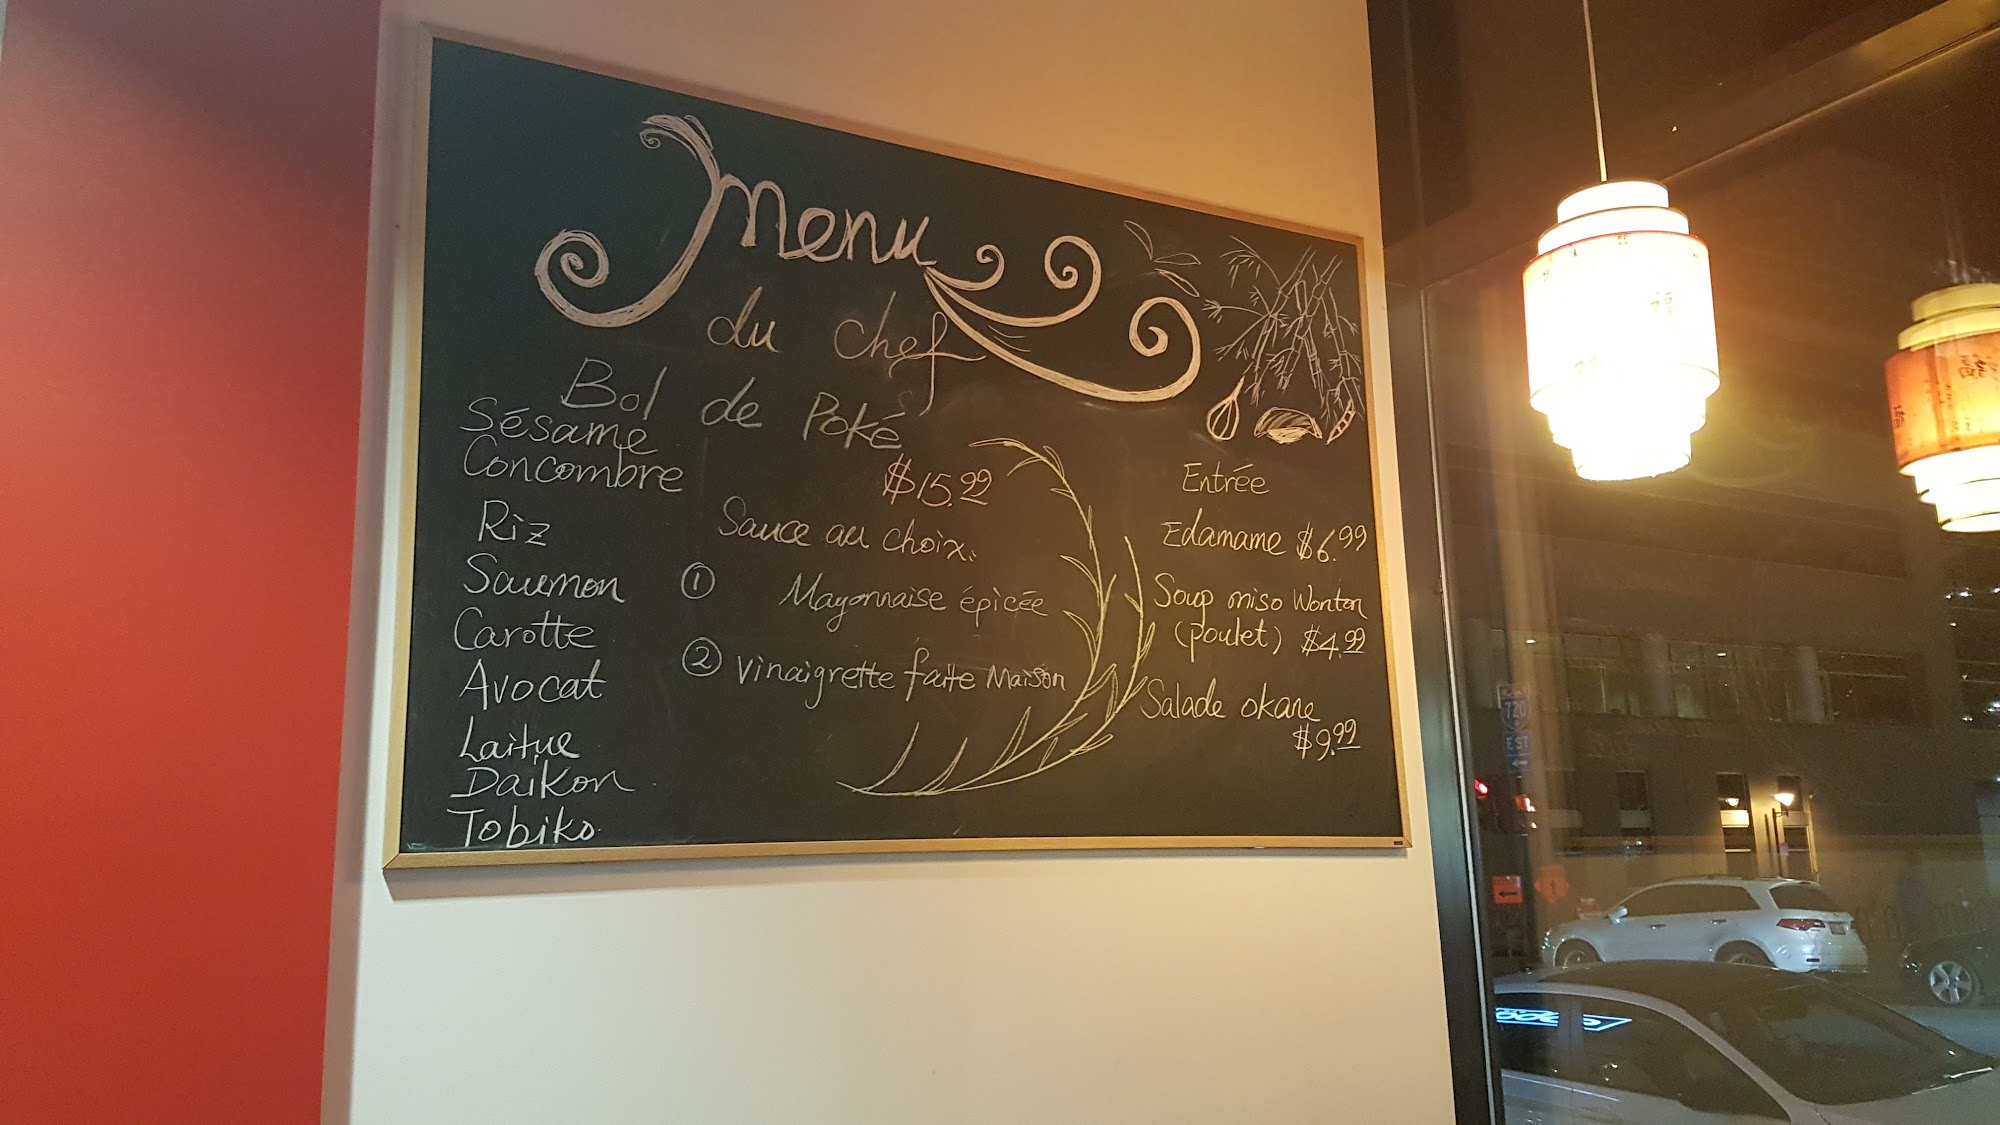 Menu
du chef
Bol de Poké
$15.99
Sésame
Concombre
Riz
Saumon
Carotte
Avocat
Laitue
Daikon
Tobiko
Sauce au choix:
① Mayonnaise épicée
② Vinaigrette faite Maison
Entrée
Edamame $6.99
Soup miso Wonton
(poulet) $4.99
Salade okane
$9.99
福
720
EST